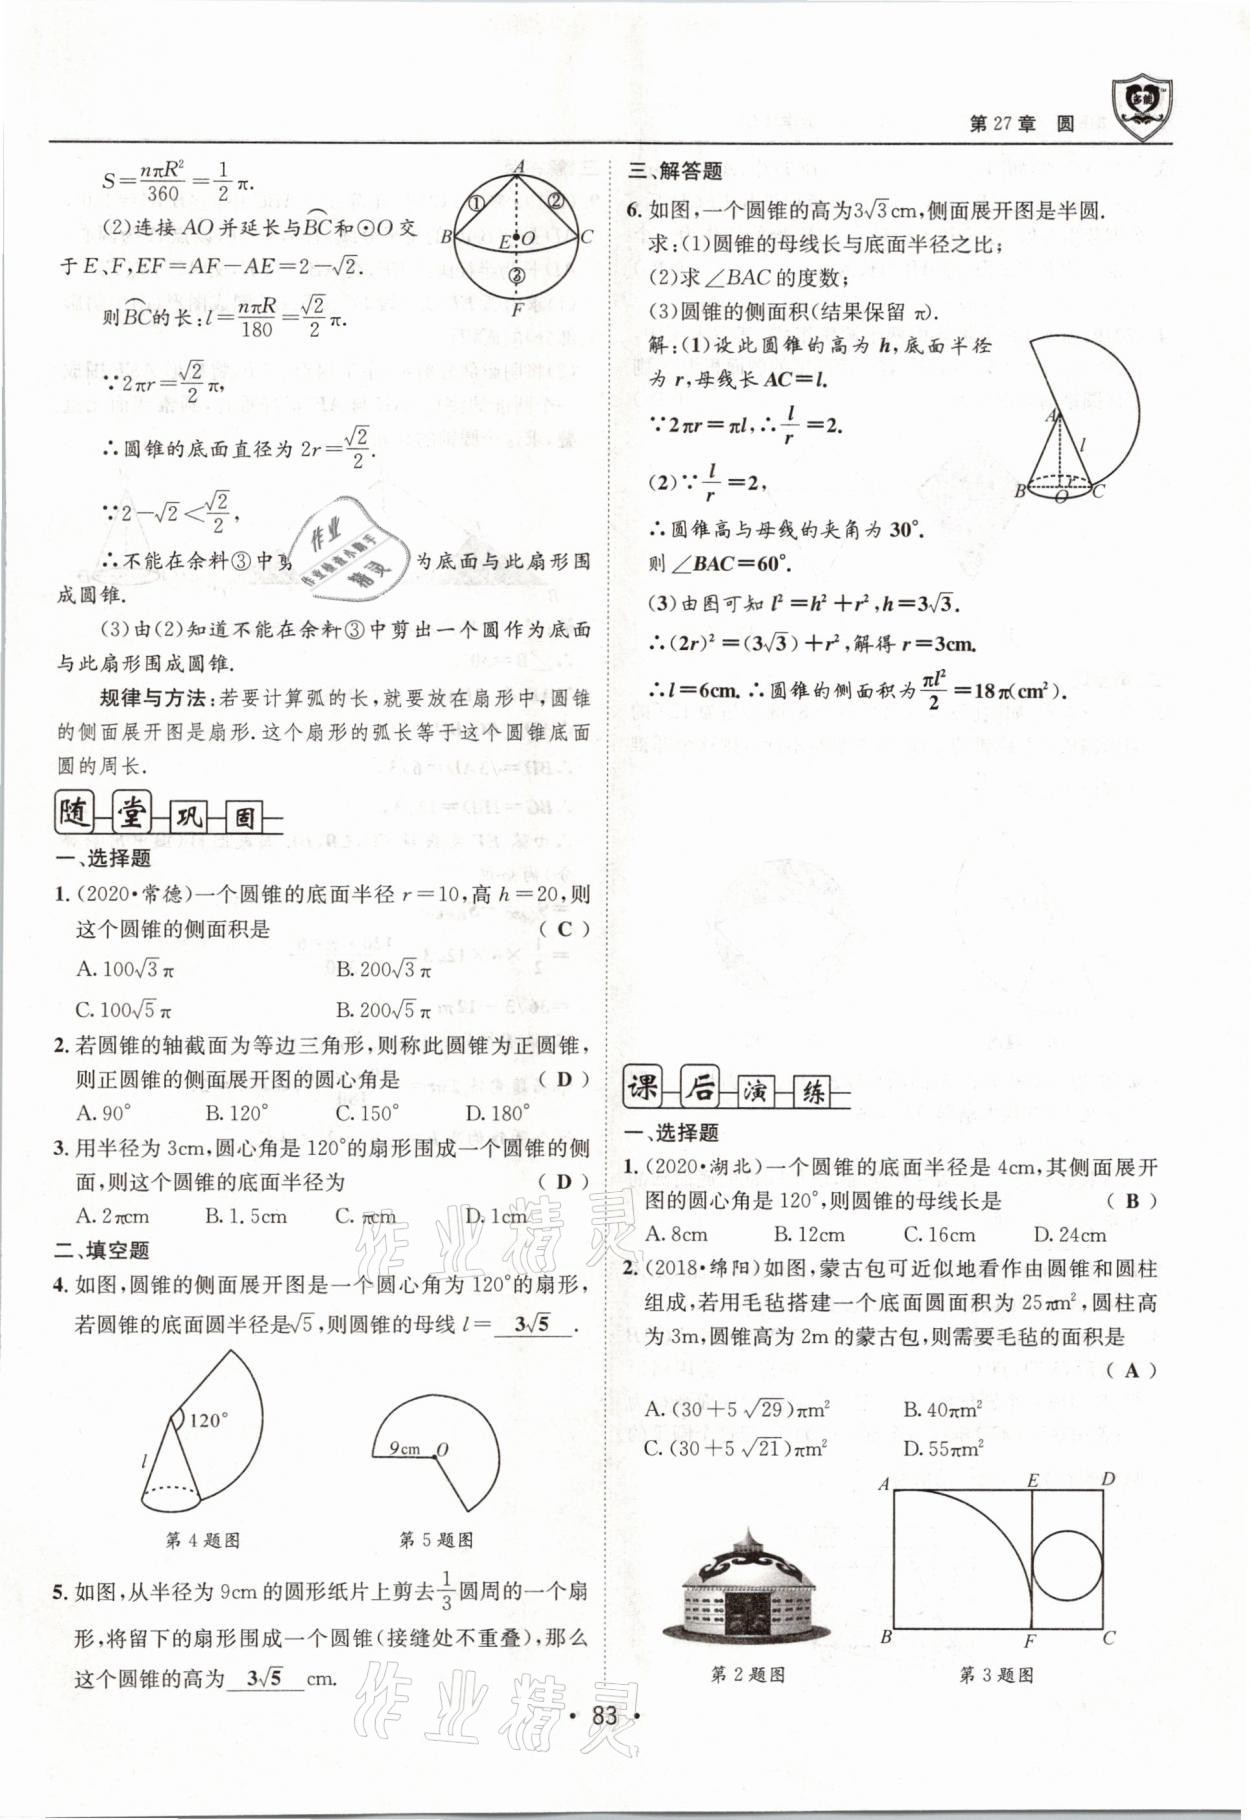 第27章 圆
S=nπR²/360=1/2π.
(2)连接 AO 并延长与BC⌒和⊙O 交
于 E、F,EF=AF-AE=2-√2.
则BC⌒的长:l=nπR/180=√2/2π.
∵2πr=√2/2π,
∴圆锥的底面直径为 2r=√2/2.
∵2-√2<√2/2,
∴不能在余料③中剪 为底面与此扇形围
成圆锥.
(3)由(2)知道不能在余料③中剪出一个圆作为底面
与此扇形围成圆锥.
规律与方法:若要计算弧的长,就要放在扇形中,圆锥
的侧面展开图是扇形.这个扇形的弧长等于这个圆锥底面
圆的周长.
A
① ②
B E O C
③
F
随堂巩固
一、选择题
1.(2020·常德)一个圆锥的底面半径 r=10,高 h=20,则
这个圆锥的侧面积是 ( C )
A.100√3π B.200√3π
C.100√5π B.200√5π
2.若圆锥的轴截面为等边三角形,则称此圆锥为正圆锥,
则正圆锥的侧面展开图的圆心角是 ( D )
A.90° B.120° C.150° D.180°
3.用半径为 3cm,圆心角是 120°的扇形围成一个圆锥的侧
面,则这个圆锥的底面半径为 ( D )
A.2πcm B.1.5cm C.πcm D.1cm
二、填空题
4.如图,圆锥的侧面展开图是一个圆心角为 120°的扇形,
若圆锥的底面圆半径是√5,则圆锥的母线 l= 3√5 .
120°
l
9cm O
第 4 题图 第 5 题图
5.如图,从半径为 9cm 的圆形纸片上剪去1/3圆周的一个扇
形,将留下的扇形围成一个圆锥(接缝处不重叠),那么
这个圆锥的高为 3√5 cm.
三、解答题
6.如图,一个圆锥的高为3√3cm,侧面展开图是半圆.
求:(1)圆锥的母线长与底面半径之比;
(2)求∠BAC 的度数;
(3)圆锥的侧面积(结果保留 π).
解:(1)设此圆锥的高为 h,底面半径
为 r,母线长 AC=l.
∵2πr=πl,∴l/r=2.
(2)∵l/r=2,
∴圆锥高与母线的夹角为 30°.
则∠BAC=60°.
(3)由图可知 l²=h²+r²,h=3√3.
∴(2r)²=(3√3)+r²,解得 r=3cm.
∴l=6cm.∴圆锥的侧面积为πl²/2=18π(cm²).
A
l
r
B O C
课后演练
一、选择题
1.(2020·湖北)一个圆锥的底面半径是 4cm,其侧面展开
图的圆心角是 120°,则圆锥的母线长是 ( B )
A.8cm B.12cm C.16cm D.24cm
2.(2018·绵阳)如图,蒙古包可近似地看作由圆锥和圆柱
组成,若用毛毡搭建一个底面圆面积为 25πm²,圆柱高
为 3m,圆锥高为 2m 的蒙古包,则需要毛毡的面积是
( A )
A.(30+5√29)πm² B.40πm²
C.(30+5√21)πm² D.55πm²
A E D
B F C
第 2 题图 第 3 题图
· 83 ·
作业精灵
作业精灵
作业
作业检查小助手
精灵
多能